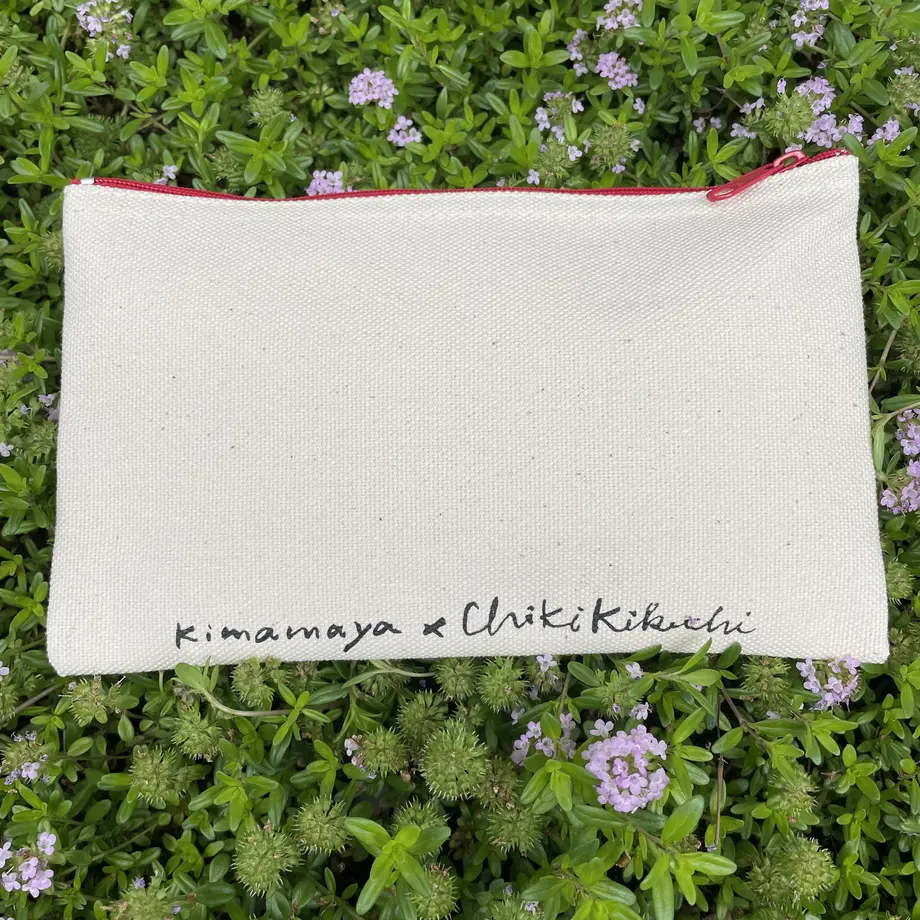 kimamaya x Chiki Kikuchi